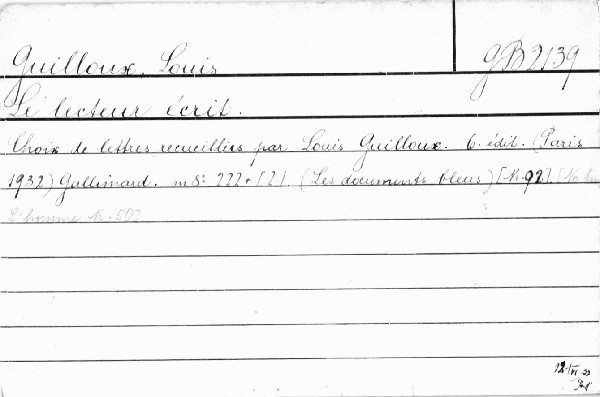 Guilloux, Louis
GB2139
Le lecteur écrit.
Choix de lettres recueillies par Louis Guilloux. 6. édit. (Paris
1932) Gallimard. m8: 222+[2]. (Les documents bleus) [N. 92].
L'homme Nr. 50]